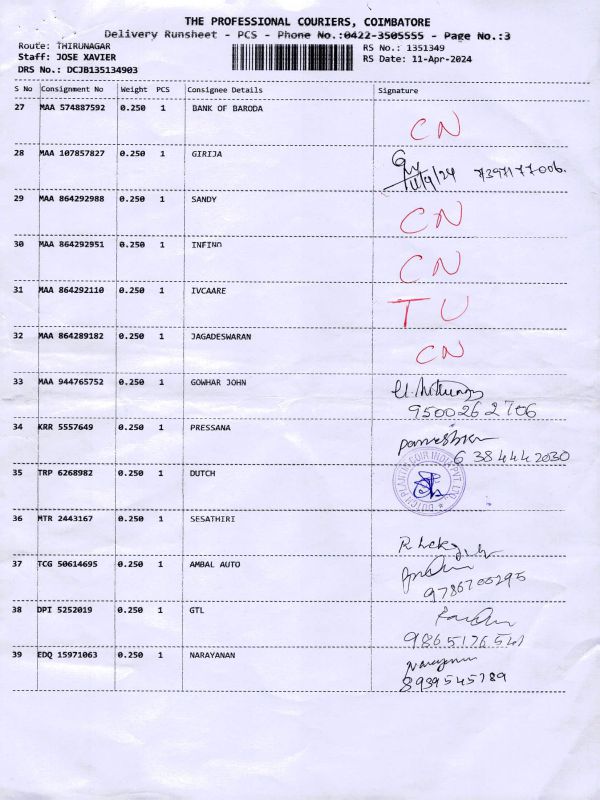 THE PROFESSIONAL COURIERS, COIMBATORE
Delivery Runsheet - PCS - Phone No.:0422-3505555 - Page No.:3
Route: THIRUNAGAR
RS No.: 1351349
Staff: JOSE XAVIER
RS Date: 11-Apr-2024
DRS No.: DCJB135134903
S No Consignment No Weight PCS Consignee Details Signature
27 MAA 574887592 0.250 1 BANK OF BARODA
CN
28 MAA 107857827 0.250 1 GIRIJA
11/4/24 7397177006.
29 MAA 864292988 0.250 1 SANDY
CN
30 MAA 864292951 0.250 1 INFINO
CN
31 MAA 864292110 0.250 1 IVCAARE
TU
32 MAA 864289182 0.250 1 JAGADESWARAN
CN
33 MAA 944765752 0.250 1 GOWHAR JOHN
9500262706
34 KRR 5557649 0.250 1 PRESSANA
6384442030
35 TRP 6268982 0.250 1 DUTCH
36 MTR 2443167 0.250 1 SESATHIRI
37 TCG 50614695 0.250 1 AMBAL AUTO
9786700295
38 DPI 5252019 0.250 1 GTL
39 EDQ 15971063 0.250 1 NARAYANAN
Narayanan
8939545789